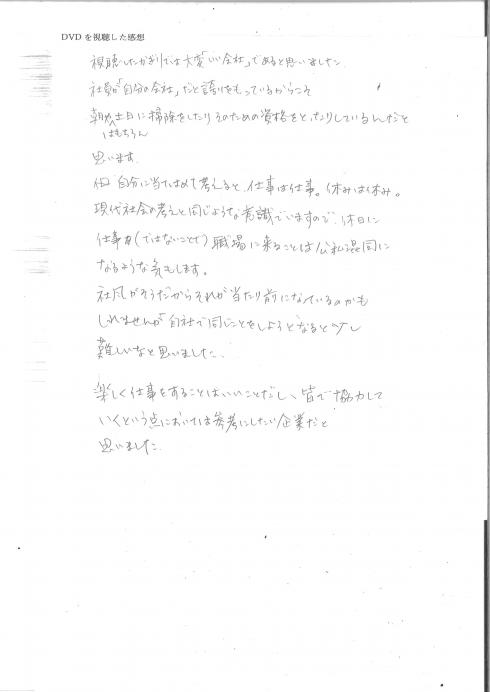 DVDを視聴した感想
視聴したかぎりでは大変「いい会社」であると思いました。
社員が「自分の会社」だと誇りをもっているからこそ
朝や土日に掃除をしたりそのための資格をとったりしているんだと
はもちろん
思います。
但 自分に当てはめて考えると、仕事は仕事。休みは休み。
現代社会の考えと同じような常識でいますので、休日に
仕事(ではないことで)職場に来ることは公私混同に
なるような気もします。
社風がそうだからそれが当たり前になっているのかも
しれませんが「自社で同じことをしようとなると少し
難しいなと思いました。
楽しく仕事をすることはいいことだし、皆で協力して
いくという点においては参考にしたい企業だと
思いました。